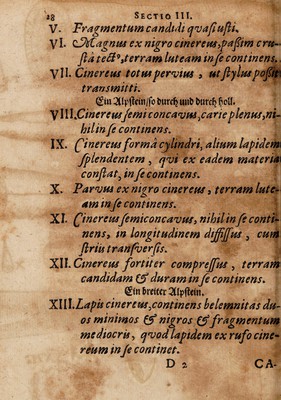 28 SECTIO III.
V. Fragmentum candidi quasi usti.
VI. Magnus ex nigro cinereus, paßim cru-
stâ tectꝰ, terram luteam in se continens.
VII. Cinereus totus pervius, ut stylus poßit
transmitti.
Ein Alpstein/so durch und durch holl.
VIII. Cinereus semiconcavus, carie plenus, ni-
hil in se continens.
IX. Cinereus formâ cylindri, alium lapidem
splendentem, qvi ex eadem materia
constat, in se continens.
X. Parvus ex nigro cinereus, terram lute-
am in se continens.
XI. Cinereus semiconcavus, nihil in se conti-
nens, in longitudinem diffissus, cum
striis transversis.
XII. Cinereus fortiter compressus, terram
candidam & duram in se continens.
Ein breiter Alpstein.
XIII. Lapis cinereus, continens belemnitas du-
os minimos & nigros & fragmentum
mediocris, qvod lapidem ex rufo cine-
reum in se continet.
D 2 CA-